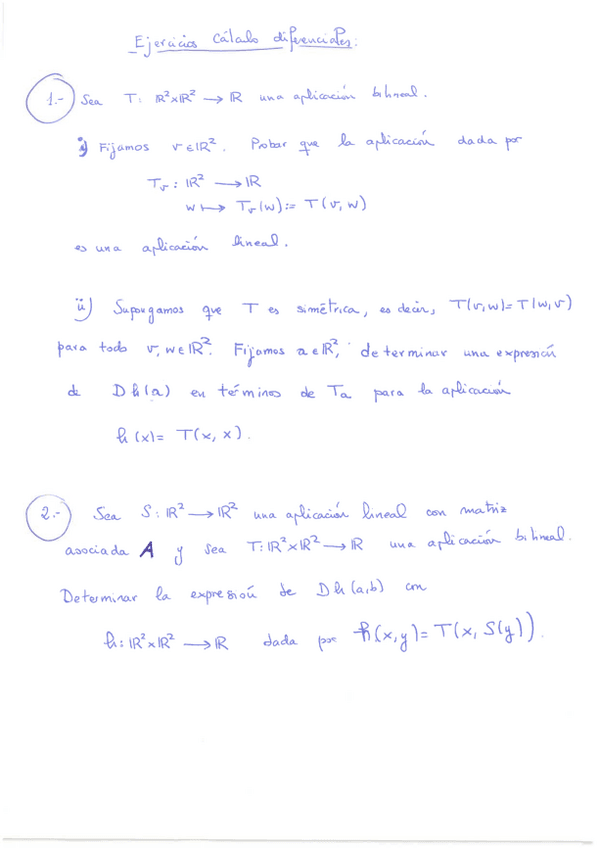 Ejercicios Cálculo diferenciales:
1.- Sea T: ℝ²×ℝ² → ℝ una aplicación bilineal.
i) Fijamos v∈ℝ². Probar que la aplicación dada por
T_v : ℝ² → ℝ
w ↦ T_v(w) := T(v, w)
es una aplicación lineal.
ii) Supongamos que T es simétrica, es decir, T(v,w)=T(w,v)
para todo v, w∈ℝ². Fijamos a∈ℝ², determinar una expresión
de Dh(a) en términos de T_a para la aplicación
h(x)= T(x, x).
2.- Sea S: ℝ² → ℝ² una aplicación lineal con matriz
asociada A y sea T: ℝ²×ℝ² → ℝ una aplicación bilineal.
Determinar la expresión de Dh(a,b) con
h: ℝ²×ℝ² → ℝ dada por h(x,y)= T(x, S(y)).